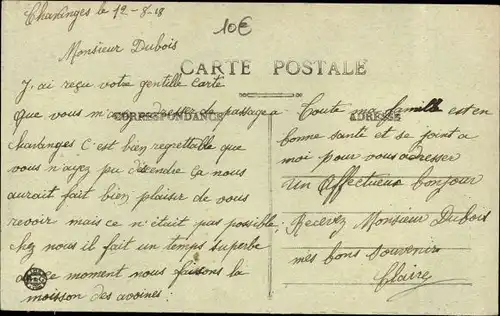 Chavanges le 12-8-18
10€
Monsieur Dubois
CARTE POSTALE
J,ai reçu votre gentille carte
que vous m'avez adresser de passage a
CORRESPONDANCE
chavanges C'est bien regrettable que
vous n'ayez pu décendre ça nous
aurait fait bien plaisir de vous
revoir mais ce n'était pas possible.
chez nous il fait un temps superbe
en ce moment nous faisons la
moisson des avoines.
ADRESSE
Toute ma famille est en
bonne santé et se joint a
moi pour vous adresser
un affectueux bonjour
Recevez Monsieur Dubois
mes bons souvenirs
Claire